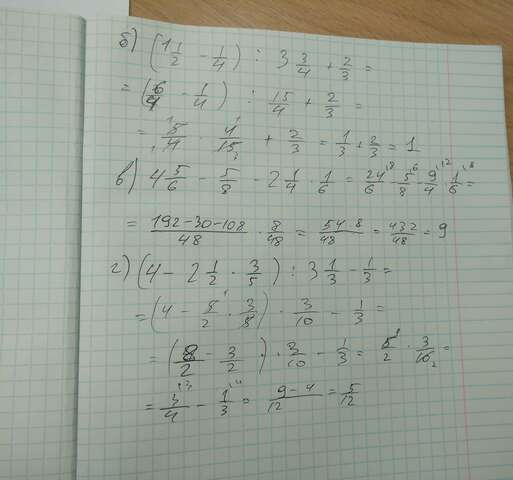 б) (1 1/2 - 1/4) : 3 3/4 + 2/3 =
= (6/4 - 1/4) : 15/4 + 2/3 =
= 5/4 · 4/15 + 2/3 = 1/3 + 2/3 = 1
в) 4 5/6 - 5/8 - 2 1/4 · 1/6 = 24/6 - 5/8 - 9/4 · 1/6 =
= 192-30-108/48 · 8/48 = 54·8/48 = 432/48 = 9
г) (4 - 2 1/2 · 3/5) : 3 1/3 - 1/3 =
= (4 - 5/2 · 3/5) · 3/10 - 1/3 =
= (8/2 - 3/2) · 3/10 - 1/3 = 5/2 · 3/10 =
= 3/4 - 1/3 = 9-4/12 = 5/12